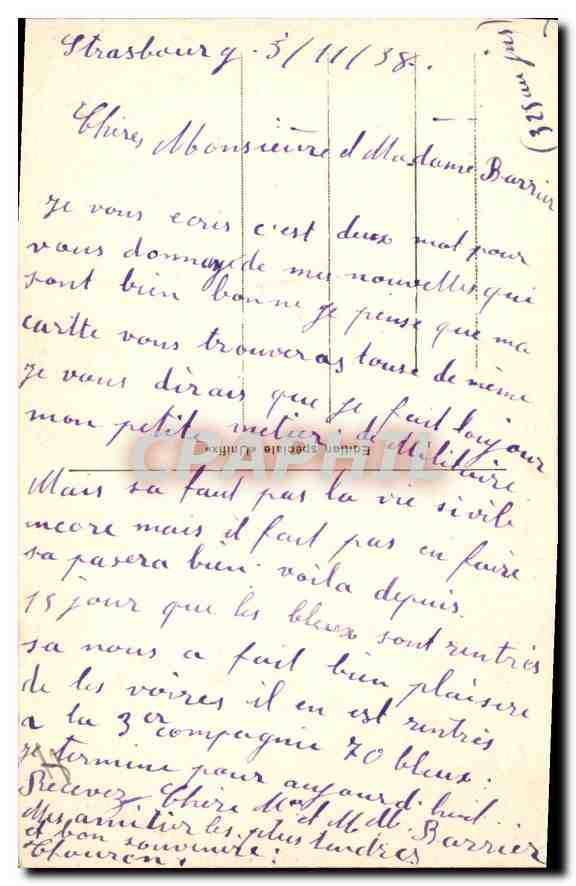 Strasbourg. 3/11/38.
Chires Monsieure d Madame Barrier
je vous ecris c'est deux mot pour
vous donnay de mes nouvelles qui
sont bien bonne je pense que ma
cartte vous trouveras touse de même
je vous dirais que je fait toujour
mon petite metier de Militaire
Edition spéciale «Unifix»
CPAPHIL
Mais sa faut pas la vie sivile
encore mais il faut pas en faire
sa pasera bien voila depuis
15 jour que les bleux sont rentrés
sa nous a fait bien plaisire
de les voires il en est rentrés
a la 3er compagnie 70 bleux.
je termine pour aujourd. huit.
Recevez Chère Mr et Mme Barrier
Mes amitier les plus tendres
d bon souvenire.